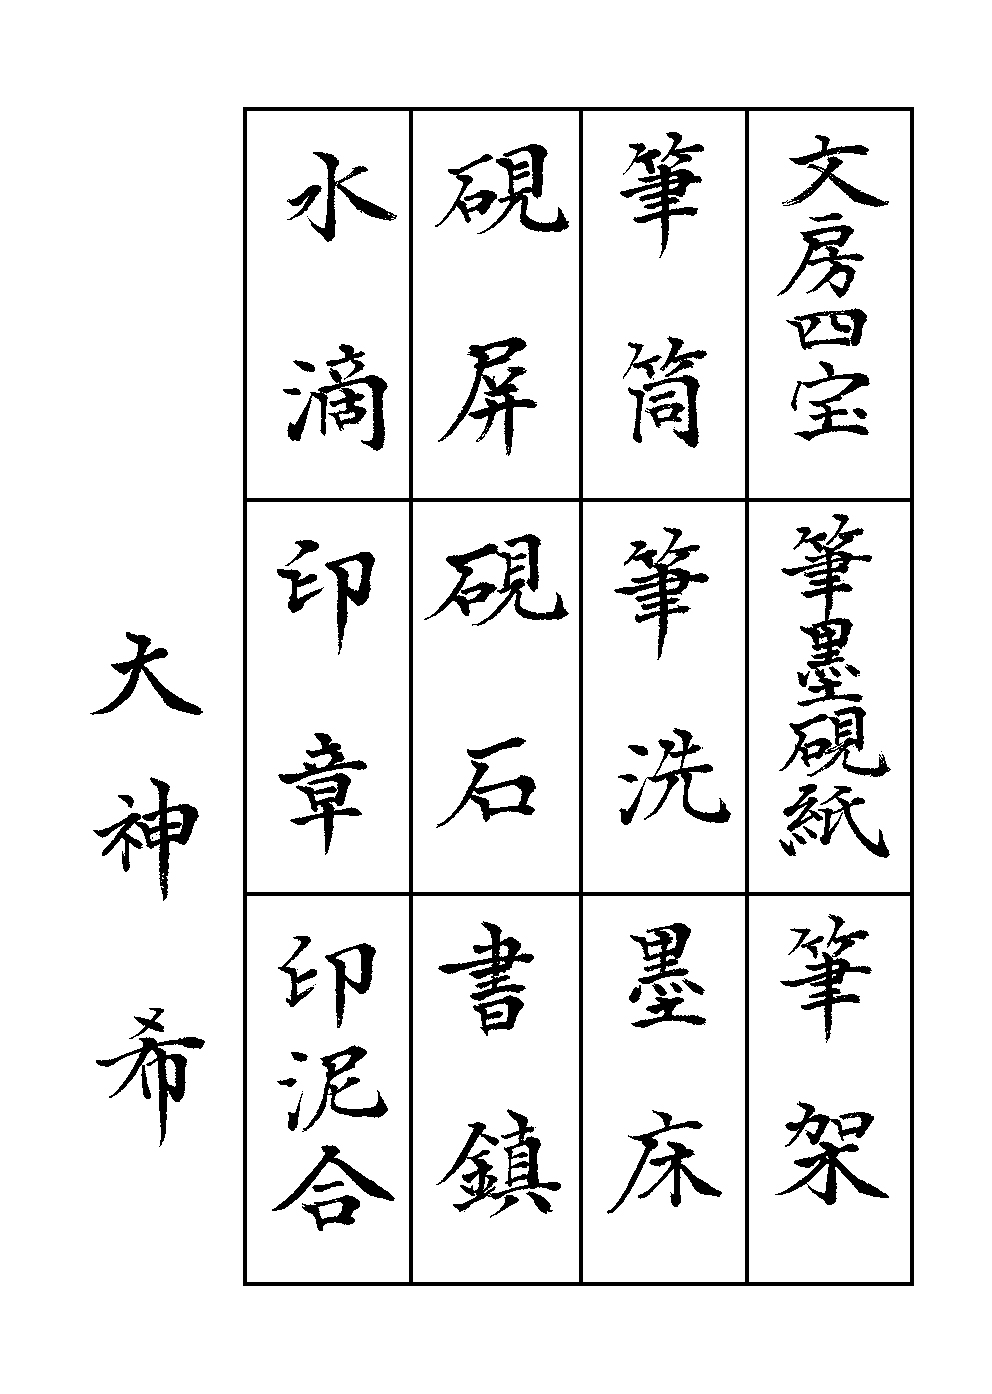 文房四宝
筆墨硯紙
筆架
筆筒
筆洗
墨床
硯屏
硯石
書鎮
水滴
印章
印泥合
大神 希